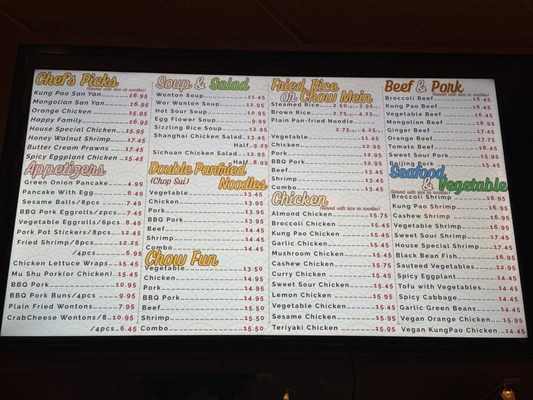 Chef's Picks
(Served with rice or noodles)
Kung Pao San Yan 16.95
Mongolian San Yan 16.95
Orange Chicken 15.95
Happy Family 16.95
House Special Chicken 15.95
Honey Walnut Shrimp 17.45
Butter Cream Prawns 17.45
Spicy Eggplant Chicken 15.45
Appetizers
Green Onion Pancake 4.99
Pancake With Egg 6.45
Sesame Balls/8pcs 7.45
BBQ Pork Eggrolls/2pcs 7.45
Vegetable Eggrolls/6pcs 8.45
Pork Pot Stickers/8pcs 12.45
Fried Shrimp/8pcs 12.25
/4pcs 6.95
Chicken Lettuce Wraps 15.45
Mu Shu Pork(or Chicken) 15.45
BBQ Pork 10.95
BBQ Pork Buns/4pcs 9.95
Plain Fried Wontons 7.95
CrabCheese Wontons/8 10.95
/4pcs 6.45
Soup & Salad
Wonton Soup 11.45
Wor Wonton Soup 12.95
Hot Sour Soup 10.95
Egg Flower Soup 9.95
Sizzling Rice Soup 12.95
Shanghai Chicken Salad 13.45
Half 9.25
Sichuan Chicken Salad 12.95
Half 8.95
Double Panfried
(Chop Sui) Noodles
Vegetable 13.45
Chicken 13.95
Pork 13.95
BBQ Pork 13.95
Beef 14.45
Shrimp 14.45
Combo 14.45
Chow Fun
Vegetable 13.50
Chicken 14.95
Pork 14.95
BBQ Pork 14.95
Beef 15.50
Shrimp 15.50
Combo 15.50
Fried Rice
or Chow Mein
Steamed Rice 2.50 3.95
Brown Rice 2.75 4.25
Plain Pan-fried Noodle
2.75 4.25
Vegetable 11.45
Chicken 12.95
Pork 12.95
BBQ Pork 12.95
Beef 13.45
Shrimp 13.45
Combo 13.45
Chicken
(Served with rice or noodles)
Almond Chicken 15.75
Broccoli Chicken 15.45
Kung Pao Chicken 15.45
Garlic Chicken 15.45
Mushroom Chicken 15.45
Cashew Chicken 15.75
Curry Chicken 15.45
Sweet Sour Chicken 15.45
Lemon Chicken 15.95
Vegetable Chicken 15.45
Sesame Chicken 15.95
Teriyaki Chicken 15.95
Beef & Pork
(Served with rice or noodles)
Broccoli Beef 16.45
Kung Pao Beef 16.45
Vegetable Beef 16.45
Mongolian Beef 16.45
Ginger Beef 17.45
Orange Beef 17.45
Tomato Beef 16.45
Sweet Sour Pork 15.95
Peijing Pork 15.45
Seafood
& Vegetable
(Served with rice or noodles)
Broccoli Shrimp 16.95
Kung Pao Shrimp 16.95
Cashew Shrimp 16.95
Vegetable Shrimp 16.95
Sweet Sour Shrimp 17.45
House Special Shrimp 17.45
Black Bean Fish 16.95
Sauteed Vegetables 12.95
Spicy Eggplant 14.45
Tofu with Vegetables 14.45
Spicy Cabbage 14.45
Garlic Green Beans 14.45
Vegan Orange Chicken 15.95
Vegan KungPao Chicken 14.45